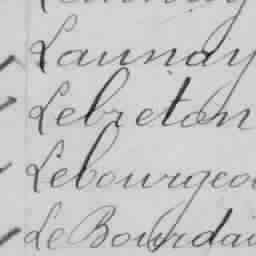 Launay
Lebreton
Lebourgeo
Le Bourdai